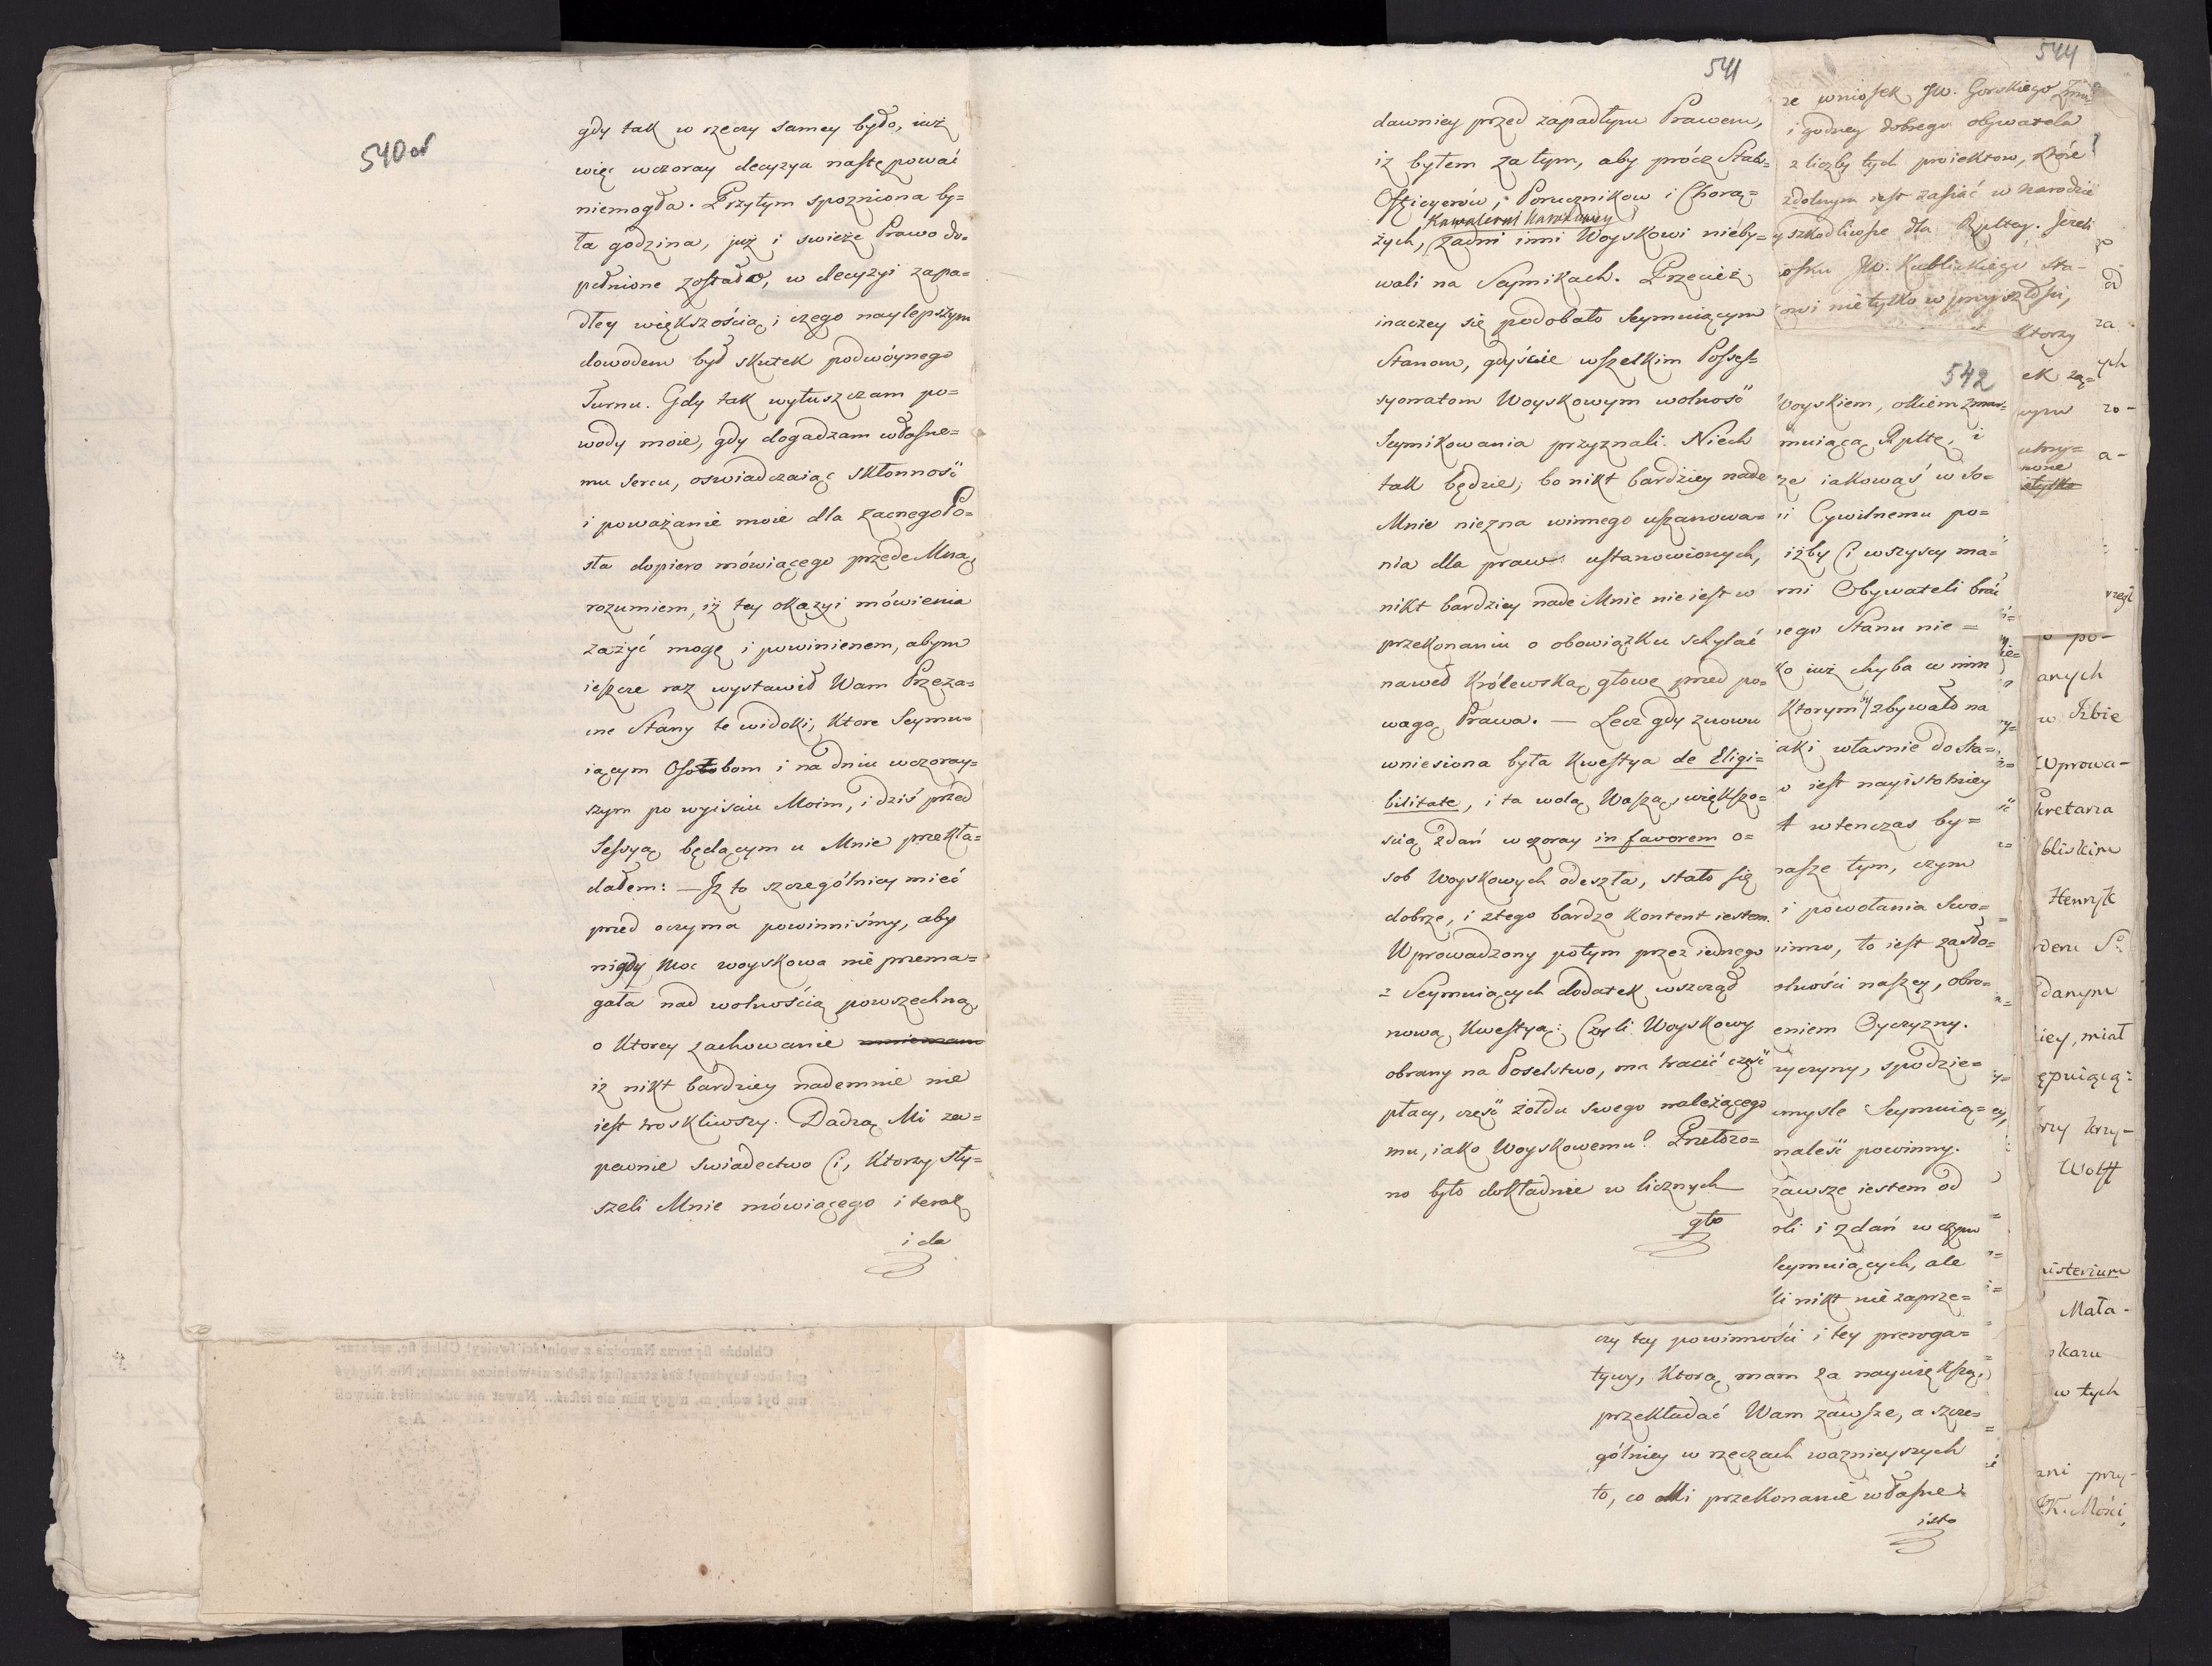 540v
gdy tak w rzeczy samey było, iuż
więc wczoray decyzya następować
niemogła. Przytym spozniona by=
ła godzina, już i swieże Prawo do=
pełnione zostało, w decyzyi zapa=
dłey większością; czego naylepszym
dowodem był skutek podwóynego
Turnu. Gdy tak wyłuszczam po=
wody moie, gdy dogadzam własne=
mu Sercu, oswiadczaiąc skłonność
i poważanie moie dla zacnego Po=
sła dopiero mówiącego przede Mną,
rozumiem, iż tey okazyi mówienia
zażyć mogę i powinienem, abym
ieszcze raz wystawił Wam Przeza=
cne Stany te widoki, ktore Seymu=
iącym Osobom i na dniu wczoray=
szym po wyiściu Moim, i dziś przed
Sessyą będącym u Mnie przekła=
dałem: — Iż to szczególniey mieć
przed oczyma powinniśmy, aby
nigdy Moc woyskowa nie przema=
gała nad wolnością powszechną,
o ktorey zachowanie mniemam
iż nikt bardziey nademnie nie
iest troskliwszy. Dadzą Mi za=
pewnie swiadectwo Ci, ktorzy sły=
szeli Mnie mówiącego i teraz
i da
541
dawniey przed zapadłym Prawem,
iż byłem za tym, aby prócz Stabs=
Officyerów, Porucznikow i Chorą=
Kawaleryi Narodowey
żych, żadni inni Woyskowi nieby=
wali na Seymikach. Przecież
inaczey się podobało Seymuiącym
Stanom, gdyście wszelkim Posses=
syonatom Woyskowym wolność
Seymikowania przyznali. Niech
tak będzie, bo nikt bardziey nade
Mnie niezna winnego uszanowa=
nia dla praw ustanowionych,
nikt bardziey nade Mnie nie iest w
przekonaniu o obowiązku schylać
nawet Królewską głowę przed po=
wagą Prawa. — Lecz gdy znowu
wniesiona była kwestya de Eligi=
bilitate, i ta wolą Waszą, większo=
scią zdań wczoray in favorem o=
sob Woyskowych odeszła, stało się
dobrze, i ztego bardzo kontent iestem.
Wprowadzony potym przez iednego
z Seymuiących dodatek wszczął
nową kwestyą: Czyli Woyskowy
obrany na Poselstwo, ma tracić część
płacy, część żołdu swego należącego
mu, iako Woyskowemu? Przełożo=
no było dokładnie w licznych
gło
544
ze wniosek JW. Gorskiego
i godney dobrego obywatela
z liczby tych proiektow, które
zdolnym iest zasiać w narodzie
szkodliwsze dla Rpltey. Jeżeli
iosku JW. Kublickiego Sta=
owi nie tylko w przyszłości,
542
Woyskiem, okiem
muiącą Rpltę, i
ze iakowąś w so=
ii Cywilnemu po=
iżby Ci wszyscy ma=
rni Obywateli brać
iego Stanu nie=
ko iuż chyba w nim
ktorym by zbywało na
iaki własnie dosta=
o iest nayistotniey
A wtenczas by=
nasze tym, czym
i powołania swo=
inno, to iest zasło=
olności naszey, obro=
eniem Oyczyzny.
rzyczyny, spodzie=
umysle Seymuią=
naleść powinny.
zawsze iestem od
oli i zdań w czym
Seymuiących, ale
li nikt nie zaprze=
czy tey powinności i tey preroga=
tywy, ktorą mam za naywiększą,
przekładać Wam zawsze, a szcze=
gólniey w rzeczach ważnieyszych
to, co Mi przekonanie własne
isto
ktorzy
ek zą=
anych
w Izbie
Wprowa-
kretarza
bliskim
Henryk
rderu S
danym
iey, miał
ępuiącą=
rzy krzy-
Wolff
nisterium
Mała-
skazu
w tych
zni przy-
K. Mości,
Chlubże się teraz Narodzie z wolności swoiey! Chlub się, żeś star-
gał obce kaydany! żeś strząsnął z siebie niewolnicze iarzmo; Nie. Nigdyś
nie był wolnym, nigdy nim nie iesteś... Nawet nie odmieniłeś niewoli